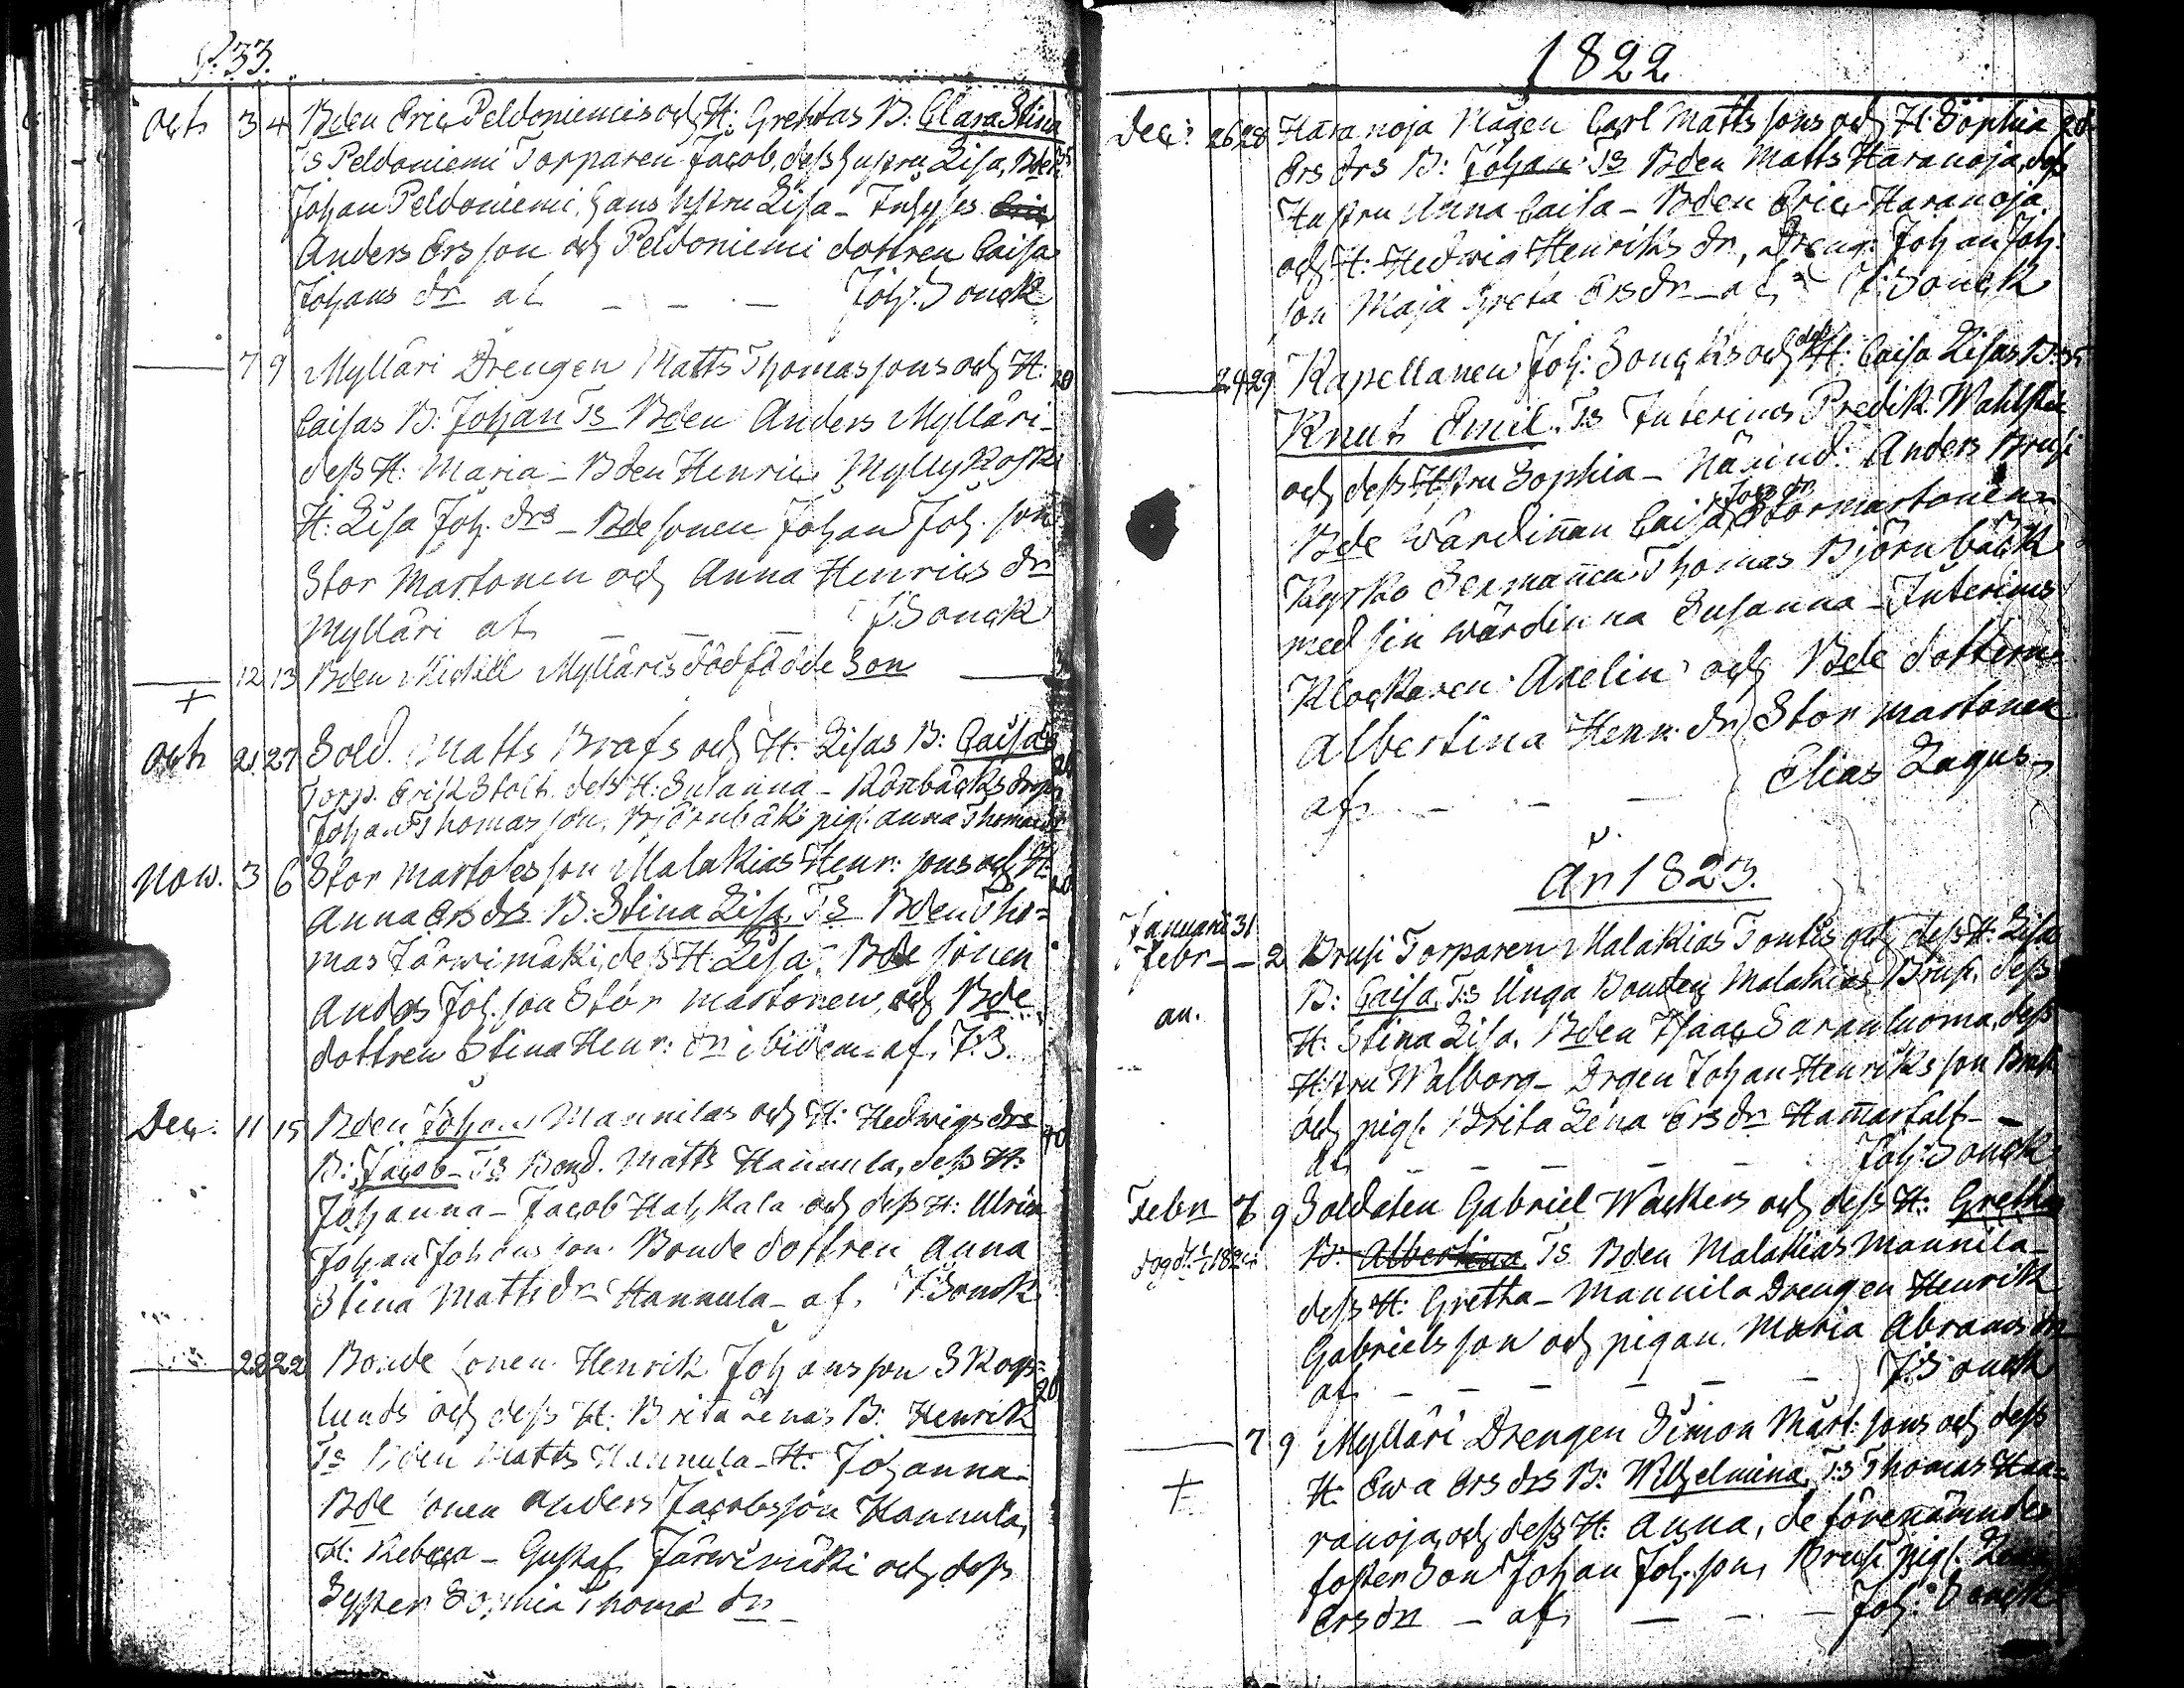 P. 33.
Oct 3 4 Bden Eric Peldoniemis och H: Grehtas B: Clara Stina
Ts Peldoniemi Torparen Jacob, dess hustru Lisa, Bden
Johan Peldoniemi, hans Hstru Lisa - Inhyses
Anders Ersson och Peldoniemi dottren Caisa
Johans dr af — — — Joh: Sonck
— 7 9 Mylläri Drengen Matts Thomassons och H: 20
Caisas B: Johan Ts Bden Anders Mylläri-
dess H: Maria - Bden Henric Myllykoski
H: Lisa Joh. drs - Bde sonen Johan Joh. son
Stor Martonen och Anna Henrics dr
Mylläri af — — — J: Sonck
— 12 13 Bden Michell Mylläris dödfödde Son —
+
Oct 21. 27 Sold. Matts Brafs och H: Lisas B: Caisa
Torp. Erik Stolt. dess H: Susanna - Rönbäcks
Johan Thomasson, Björnbäk pig. Anna Thomas dr
Nov. 3 6 Stor martoles son Malakias Henr: sons och H: 20
Anna Ers drs B: Stina Lisa, Ts Bden Tho=
mas Järwimäki, dess H: Lisa, Bde sonen
Anders Joh. son Stor martonen, och Bde
dottren Stina Henr: dr ibidem af. J. S.
Dec. 11 15 Bden Johan Mannilas och H: Hedwigs drs
B: Jacob - Ts Bond. Matts Hannula, dess H:
Johanna - Jacob Hahkala och dess H: Ulrica
Johan Johansson. Bonde dottren Anna
Stina Matts dr Hannula - af, J: Sonck
— 22 22 Bonde sonen Henrik Johansson Skogs=
lunds och dess H: Brita Lenas B: Henrik 20
Ts Bden Matts Hannula - H: Johanna -
Bde sonen Anders Jacobsson Hannula,
H: Rebeca - Gustaf Järwimäki och dess
Syster Sophia Thoma dr -
1822
Dec: 26 28 Haranoja Mågen Carl Mattssons och H: Sophia 20
Ers drs B: Johan Ts Bden Matts Haranoja, dess
Hustru Anna Caisa - Bden Eric Haranoja
och H: Hedwig Henriks dr, Dreng: Johan Joh:
son Maja Greta Ers dr - af J: Sonck
— 24 29 Kapellanen Joh: Soncks och dess H: Caisa Lisas B: 35
Knut Emil. Ts Interims Predik. Wahlst
och dess Hstru Sophia - Nämnd: Anders Brusi
Bde wärdinnan Caisa Stormartonen
Kyrko Sexmannen Thomas Björnbäck
med sin wärdinna Susanna - Interims
Klockaren Axelin och Bde dottern
Albertina Henr. dr Stor martonen
af — — — Elias Lagus
År 1823.
Januari 31
Febr — 2 Brusi Torparen Malakias Tontis och dess H: Lisa
B: Caisa, Ts Unga Bonden Malakias Brusi, dess
an.
H: Stina Lisa, Bden Isaac Saranluoma, dess
Hstru Walborg - Drgen Johan Henriksson Brusi
och pig. Brita Lena Ers dr Hamarfalt —
af — — — — — Joh: Sonck
Febr 6 9 Soldaten Gabriel Wackers och dess H: Gretha
B: Albertina Ts Bden Malakias Mannila -
dess H: Gretha - Mannila Drengen Henrik
Gabrielsson och pigan. Maria Abrams dr
af — — — — — J: Sonck
— 7 9 Mylläri Drengen Simon Mårt: sons och dess
+
H: Ewa Ers drs B: Wilhelmina, Ts Thomas Haa=
ranoja, och dess H: Anna, de förenämndes
foster Son Johan Joh. son, Brusi pig.
Ers dr — af — — — Joh: Sonck